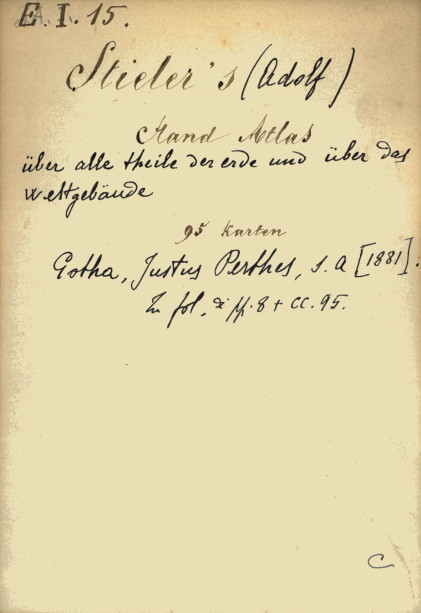 E. I. 15.
Stieler's (Adolf)
Hand Atlas
über alle theile der erde und über das
weltgebäude
95 Karten
Gotha, Justus Perthes, s. a [1881].
In fol, di ff. 8 + CC. 95.
C